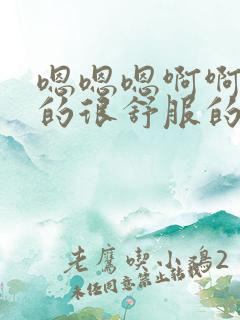 嗯嗯嗯啊啊
的很舒服的
老鹰喫小鸡2
未经同意禁止转载